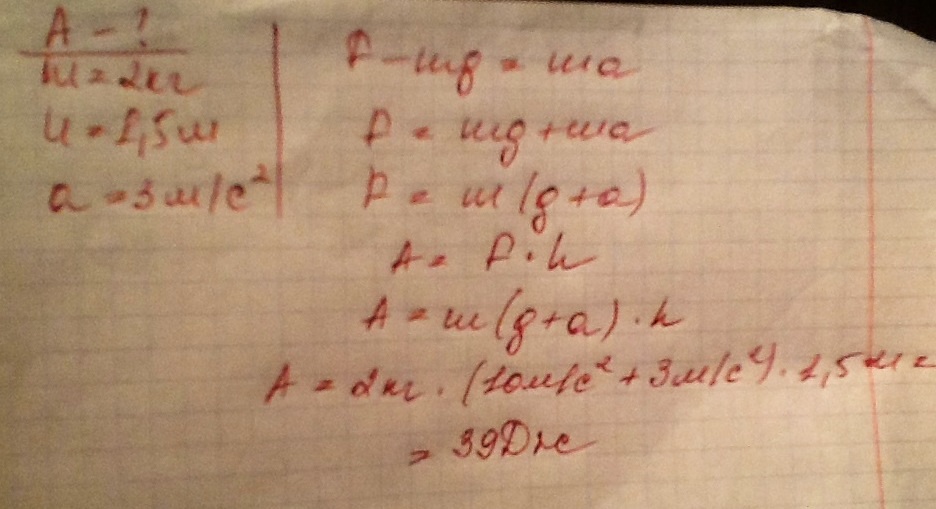 A - ?
m = 2кг
h = 1,5м
a = 3м/с²
F - mg = ma
F = mg + ma
F = m(g+a)
A = F · h
A = m(g+a) · h
A = 2кг · (10м/с² + 3м/с²) · 1,5м =
= 39Дж